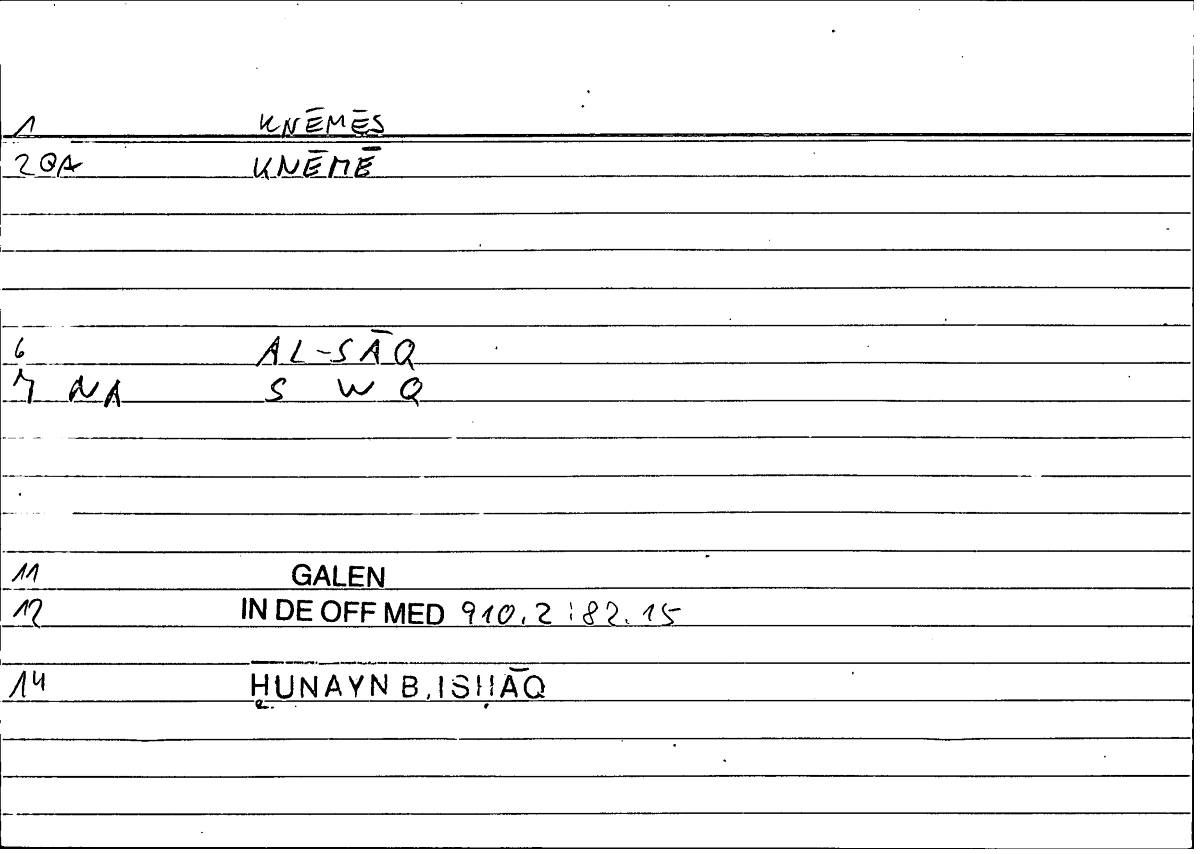 1 KNĒMĒS
2 QA KNĒMĒ
6 AL-SĀQ
7 NA S W Q
11 GALEN
12 IN DE OFF MED 910.2:82.15
14 ḤUNAYN B. ISḤĀQ